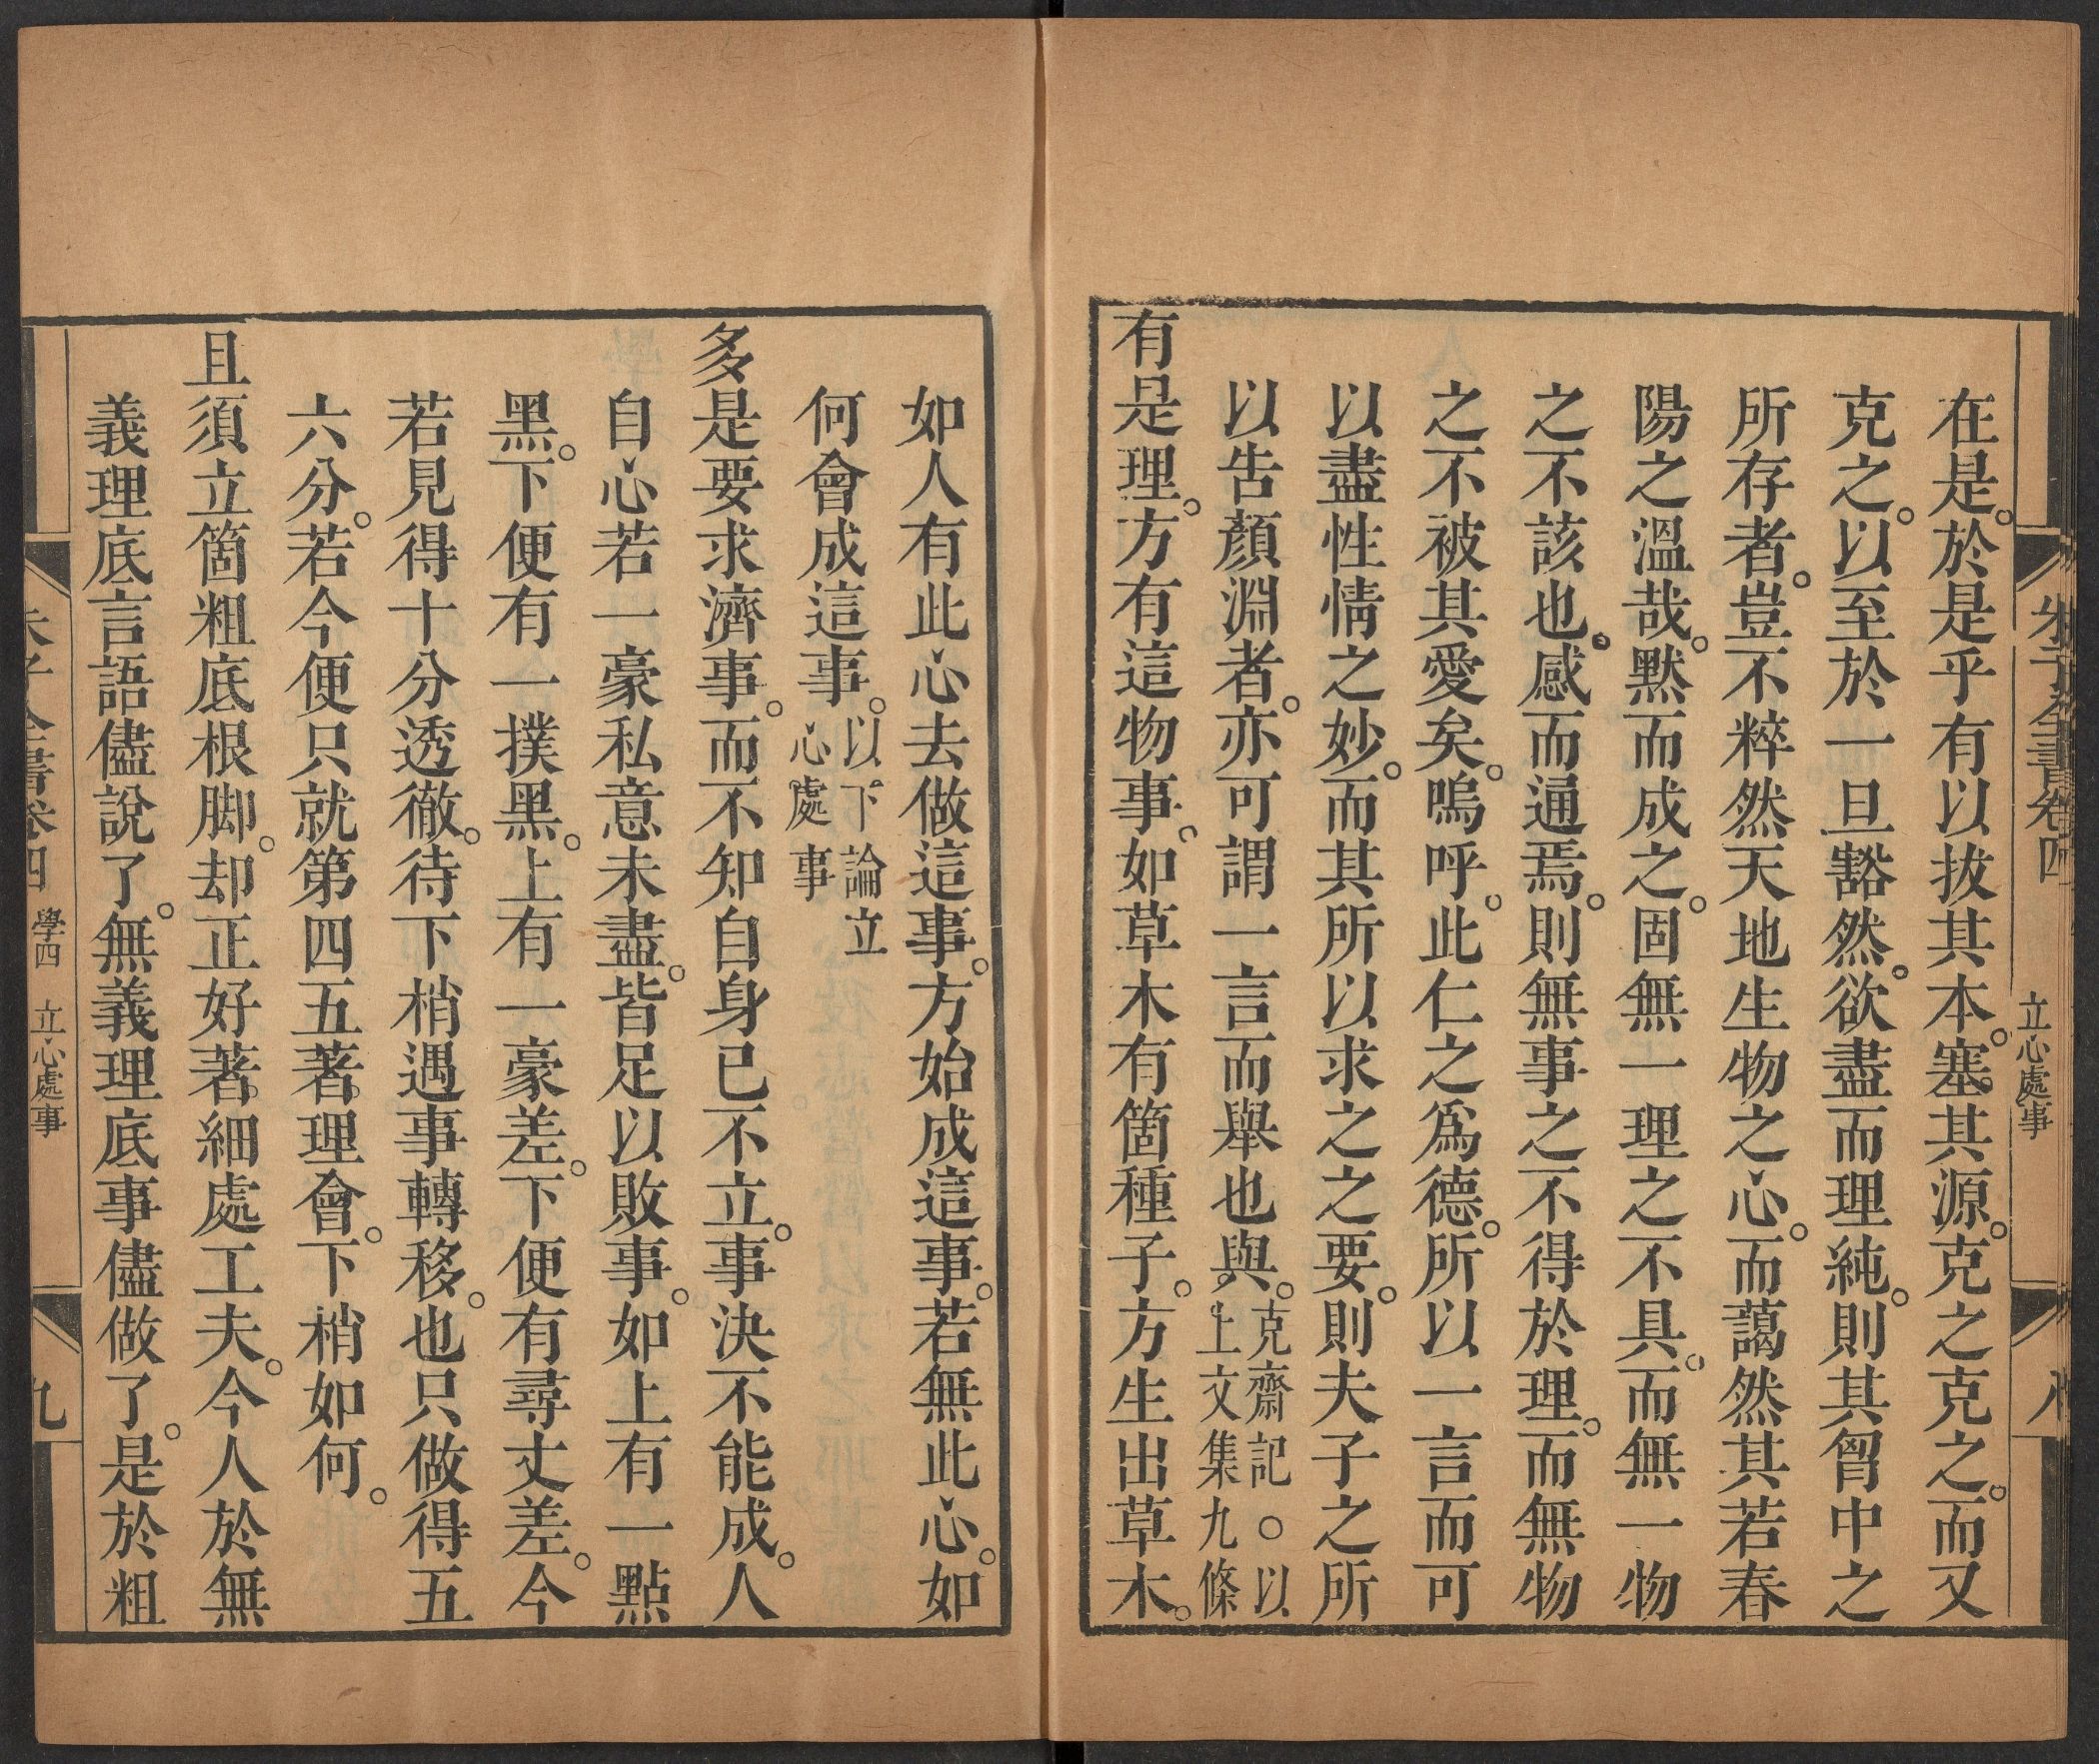 朱子全書卷四 立心處事 八
在是。於是乎有以拔其本。塞其源。克之克之。而又
克之。以至於一旦豁然。欲盡而理純。則其胷中之
所存者。豈不粹然天地生物之心。而藹然其若春
陽之溫哉。黙而成之。固無一理之不具。而無一物
之不該也。感而通焉。則無事之不得於理。而無物
之不被其愛矣。嗚呼。此仁之爲德。所以一言而可
以盡性情之妙。而其所以求之之要。則夫子之所
以告顏淵者。亦可謂一言而舉也與。克齋記○以
上文集九條
有是理。方有這物事。如草木有箇種子。方生出草木。
如人有此心去做這事。方始成這事。若無此心。如
何會成這事。以下論立
心處事
多是要求濟事。而不知自身已不立。事決不能成。人
自心若一豪私意未盡。皆足以敗事。如上有一點
黑。下便有一撲黑。上有一豪差。下便有尋丈差。今
若見得十分透徹。待下梢遇事轉移。也只做得五
六分。若今便只就第四五著理會。下梢如何。
且須立箇粗底根脚。却正好著細處工夫。今人於無
義理底言語儘說了。無義理底事儘做了。是於粗
朱子全書卷四 學四 立心處事 九